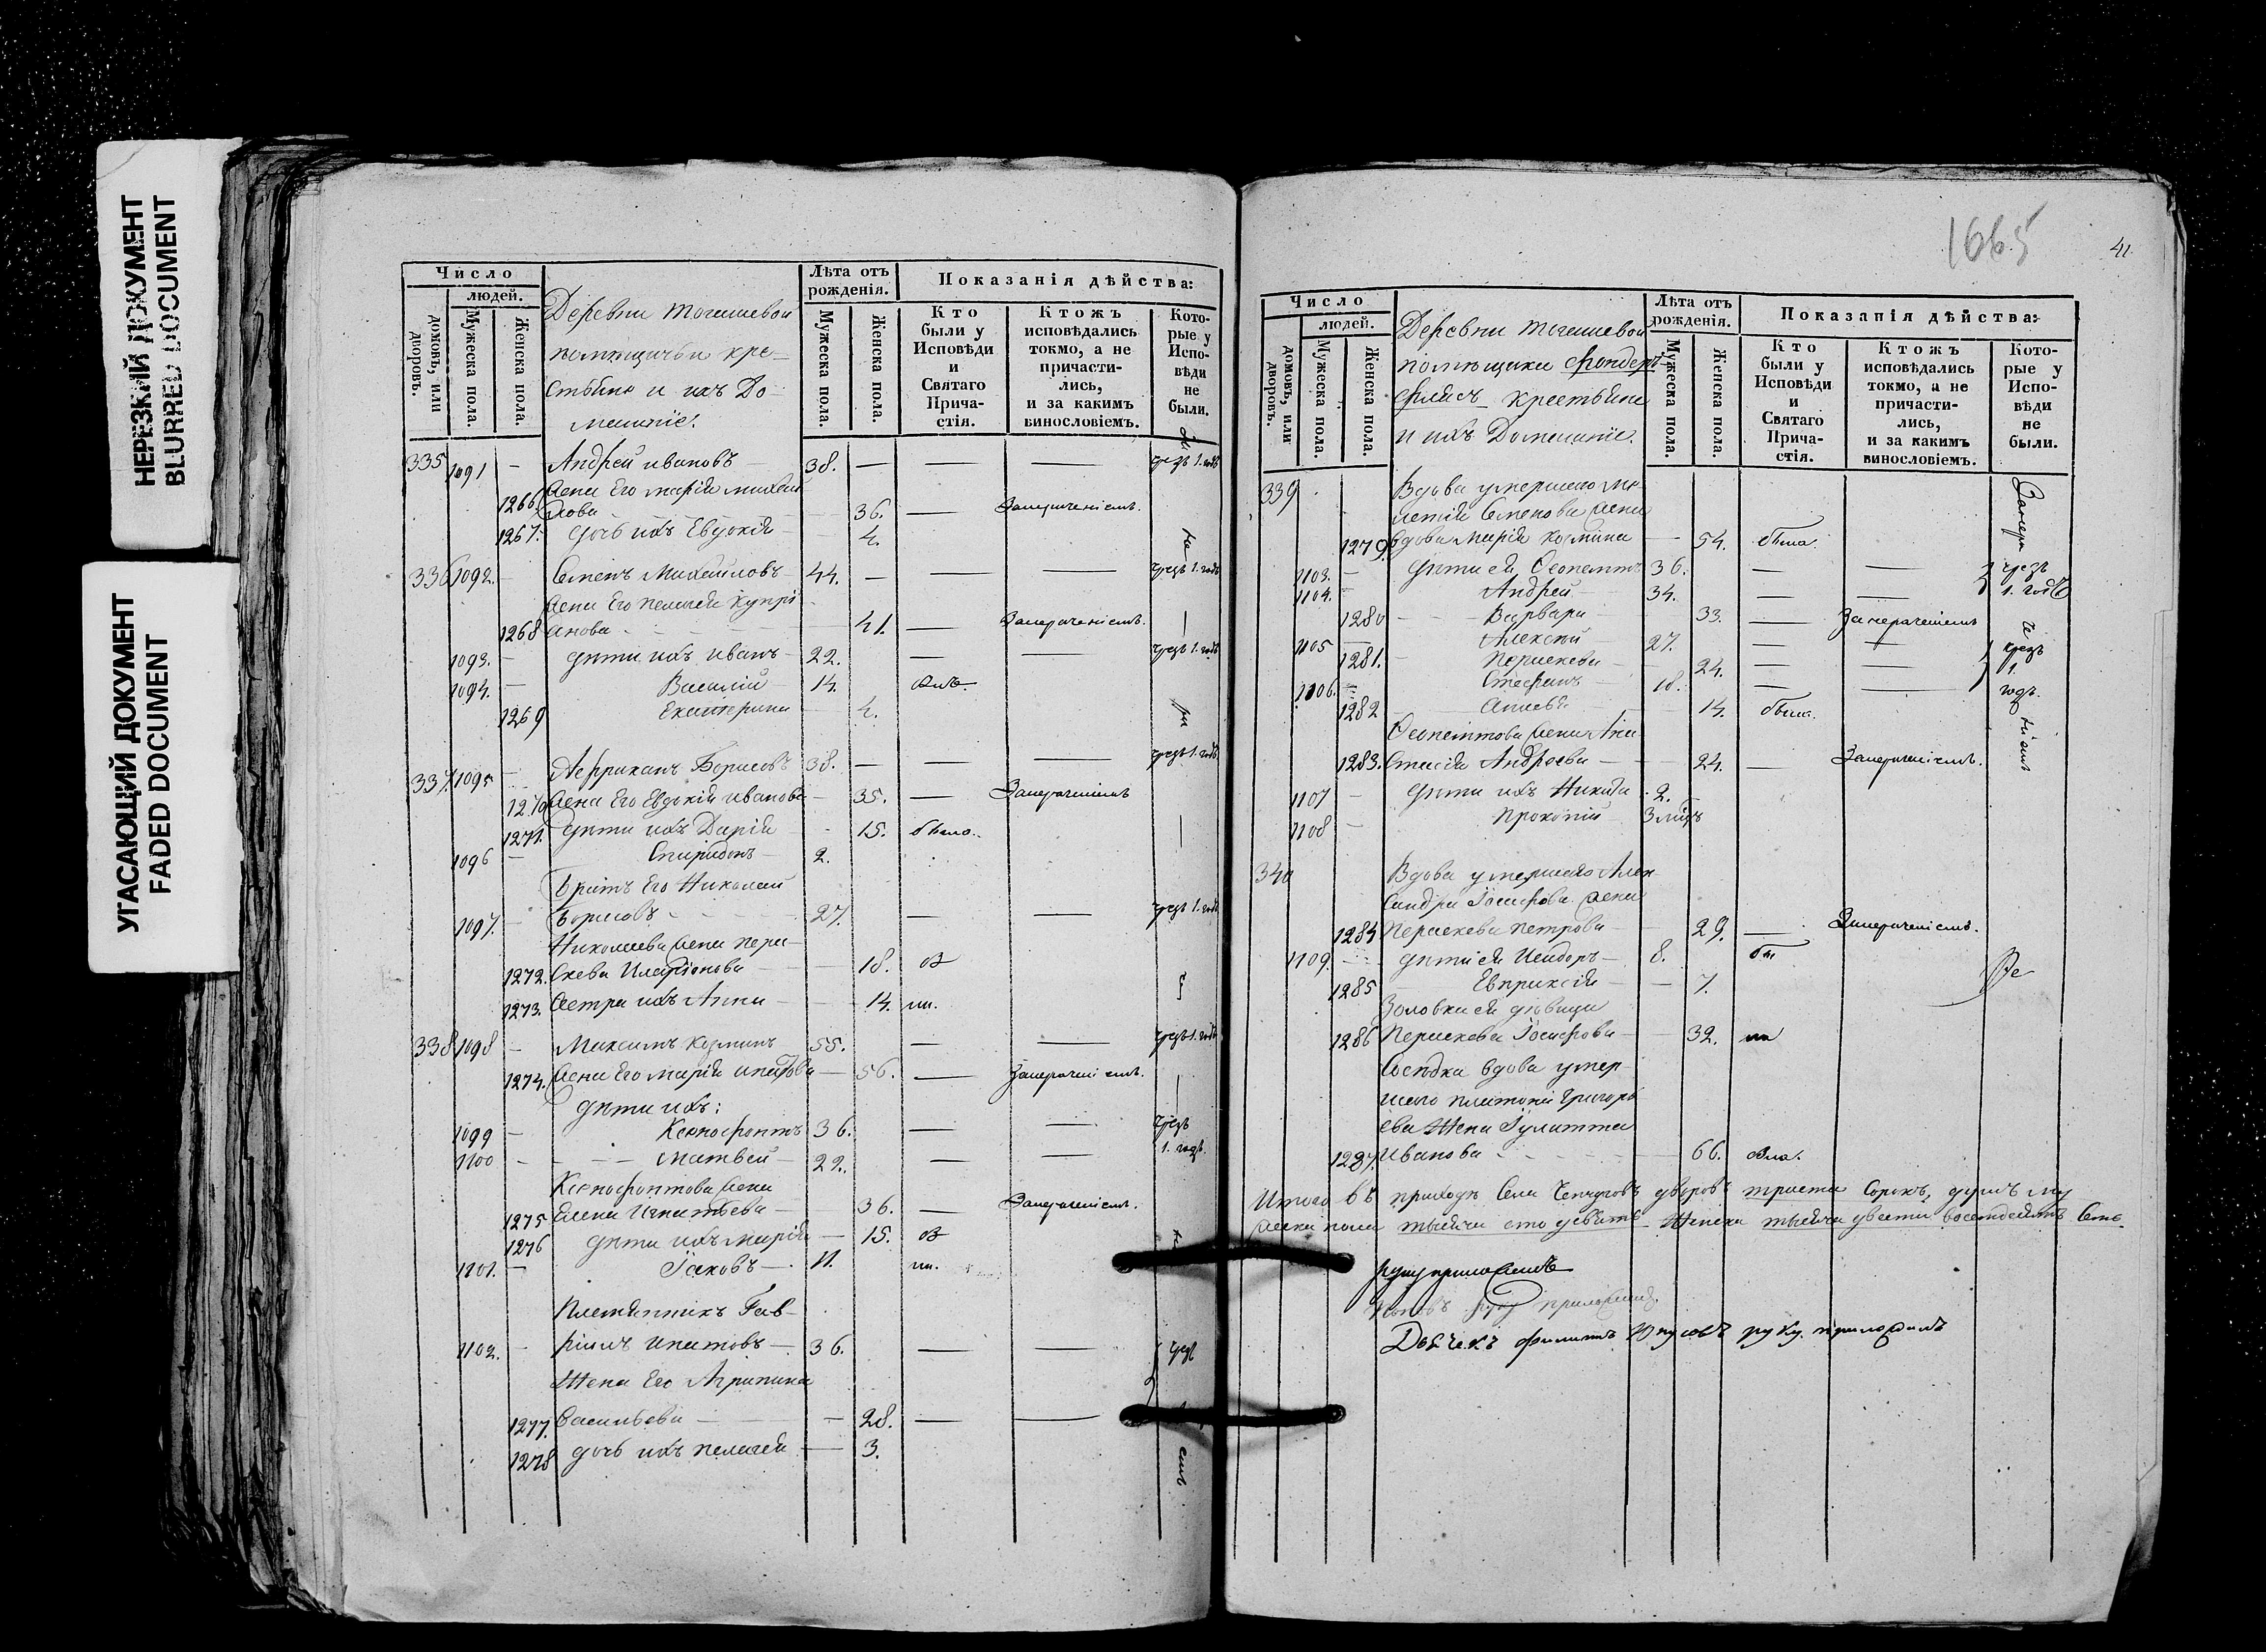 НЕРЕЗКИЙ ДОКУМЕНТ
BLURRED DOCUMENT
УГАСАЮЩИЙ ДОКУМЕНТ
FADED DOCUMENT
Число
людей.
домовъ, или дворовъ.
Мужеска пола.
Женска пола.
Деревни
помѣщичьи кре-
стьяне и ихъ До-
машніе.
Лѣта отъ рожденія.
Мужеска пола.
Женска пола.
Показанія дѣйства:
Кто были у Исповѣди и Святаго Прича-стія.
Ктожъ исповѣдались токмо, а не причасти-лись, и за какимъ винословіемъ.
Кото-рые у Испо-вѣди не были.
335 1091 — Андрей Ивановъ 38. — — чрезъ 1. годъ
жена Его Марія Михай
1266. лова 36. — Занераченіемъ.
1267. дочь ихъ Евдокія 4.
336 1092. Семенъ Михайловъ 44. — — — чрезъ 1. годъ
жена Его Пелагея Купрі
1268 анова 41. — Занераченіемъ.
1093. — дѣти ихъ Иванъ 22. — — чрезъ 1. годъ
1094. — Василій 14. былъ.
1269 Екатерина 4.
337. 1095 — Африканъ Борисовъ 38. — — — чрезъ 1. годъ
1270 жена Его Евдокія Иванова 35. — Занераченіемъ
1271. дѣти ихъ Дарія 15. была.
1096 — Спиридонъ 2.
Братъ Его Николай
1097. — Борисовъ 27. — — чрезъ 1. годъ
Николаева жена Пара-
1272. скева Иларіонова 18.
1273. сестра ихъ Анна 14.
338 1098 — Максимъ Козминъ 55. — — чрезъ 1. годъ
1274. жена Его Марія Ипатова 56. — Занераченіемъ.
дѣти ихъ:
1099 — Ксенофонтъ 36. — — чрезъ
1100 — Матвей 22. — — 1. годъ.
Ксенофонтова жена
1275 Елена Игнатьева 36. — Занераченіемъ.
1276 дѣти ихъ Марія 15.
1101. — Іаковъ 11.
Племянникъ Гав-
1102. — ріилъ Ипатовъ 36. — — чрезъ
Жена Его Агрипина
1277. Васильева 28. — —
1278 дочь ихъ Пелагея 3.
1665
41
Число
людей.
домовъ, или дворовъ.
Мужеска пола.
Женска пола.
Деревни
помѣщика
крестьяне
и ихъ Домашніе.
Лѣта отъ рожденія.
Мужеска пола.
Женска пола.
Показанія дѣйства:
Кто были у Исповѣди и Святаго Прича-стія.
Ктожъ исповѣдались токмо, а не причасти-лись, и за какимъ винословіемъ.
Кото-рые у Испо-вѣди не были.
339 Вдова умершаго
Семенова жена
1279. вдова Марія Козмина 54. была.
1103. — дѣти ея Ѳеопемптъ 36. — — чрезъ
1104. — Андрей 34. — — 1. годъ
1280 Варвара 33. — Занераченіемъ
1105 — Алексѣй 27. — чрезъ
1281. Параскева 24. — — 1.
1106. — Стефанъ 18. — — годъ.
1282 14. была.
Ѳеопемптова жена Ана
1283. стасія Андреева 24. — Занераченіемъ.
1107 — дѣти ихъ Никита 2.
1108 — Прокопій 3 мцъ
340 Вдова умершаго Алек
сандра Іосифова жена
1284 Параскева Петрова 29. — Занераченіемъ.
1109. дѣти ея Исидоръ 8.
1285 Евпраксія 7.
Золовка ея дѣвица
1286 Параскева Іосифова 32.
Сосѣдка вдова умер-
шаго Платона Григорь
ева Жена Іулитта
1287. Иванова 66. была.
Итого въ приходѣ Села дворовъ триста Сорокъ, душъ му
жеска пола тысяча сто девять Женска тысяча двести восемдесятъ Семь.
руку приложилъ
руку приложилъ
Дьячекъ Филиппъ руку приложилъ